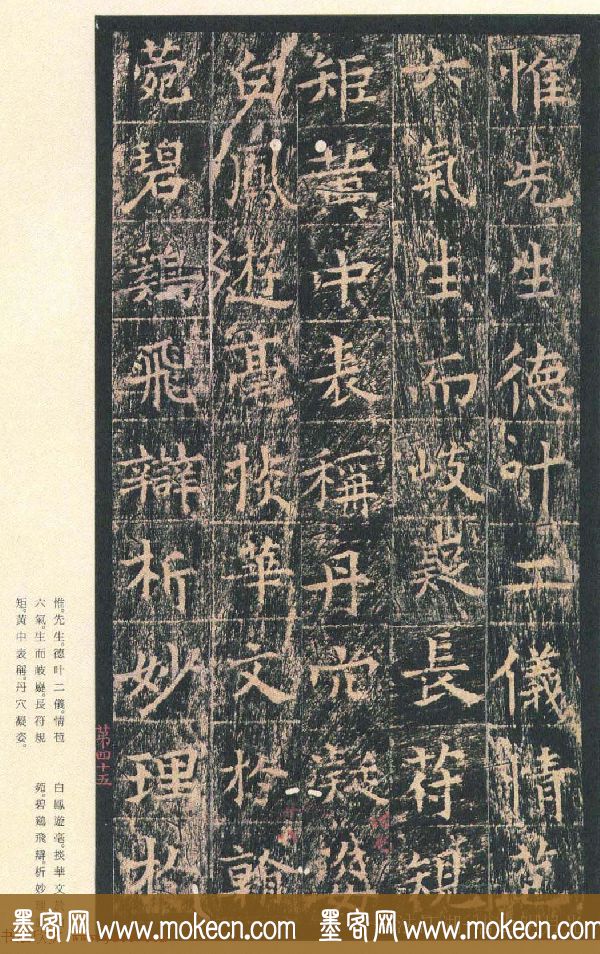 惟先生德叶二儀情苞
六氣生而岐嶷長符規
矩黃中表稱丹穴凝姿
白鳳遊毫掞華文於翰
菀碧鷄飛辯析妙理於
第四十五
惟。先生。德叶二儀。情苞
六氣。生而岐嶷。長符規
矩。黃中表稱。丹穴凝姿。
白鳳遊毫。掞華文
苑。碧鷄飛辯。析妙理
墨客网 www.mokecn.com 墨客网 www.mokecn.com 墨客网 www.mokecn.com